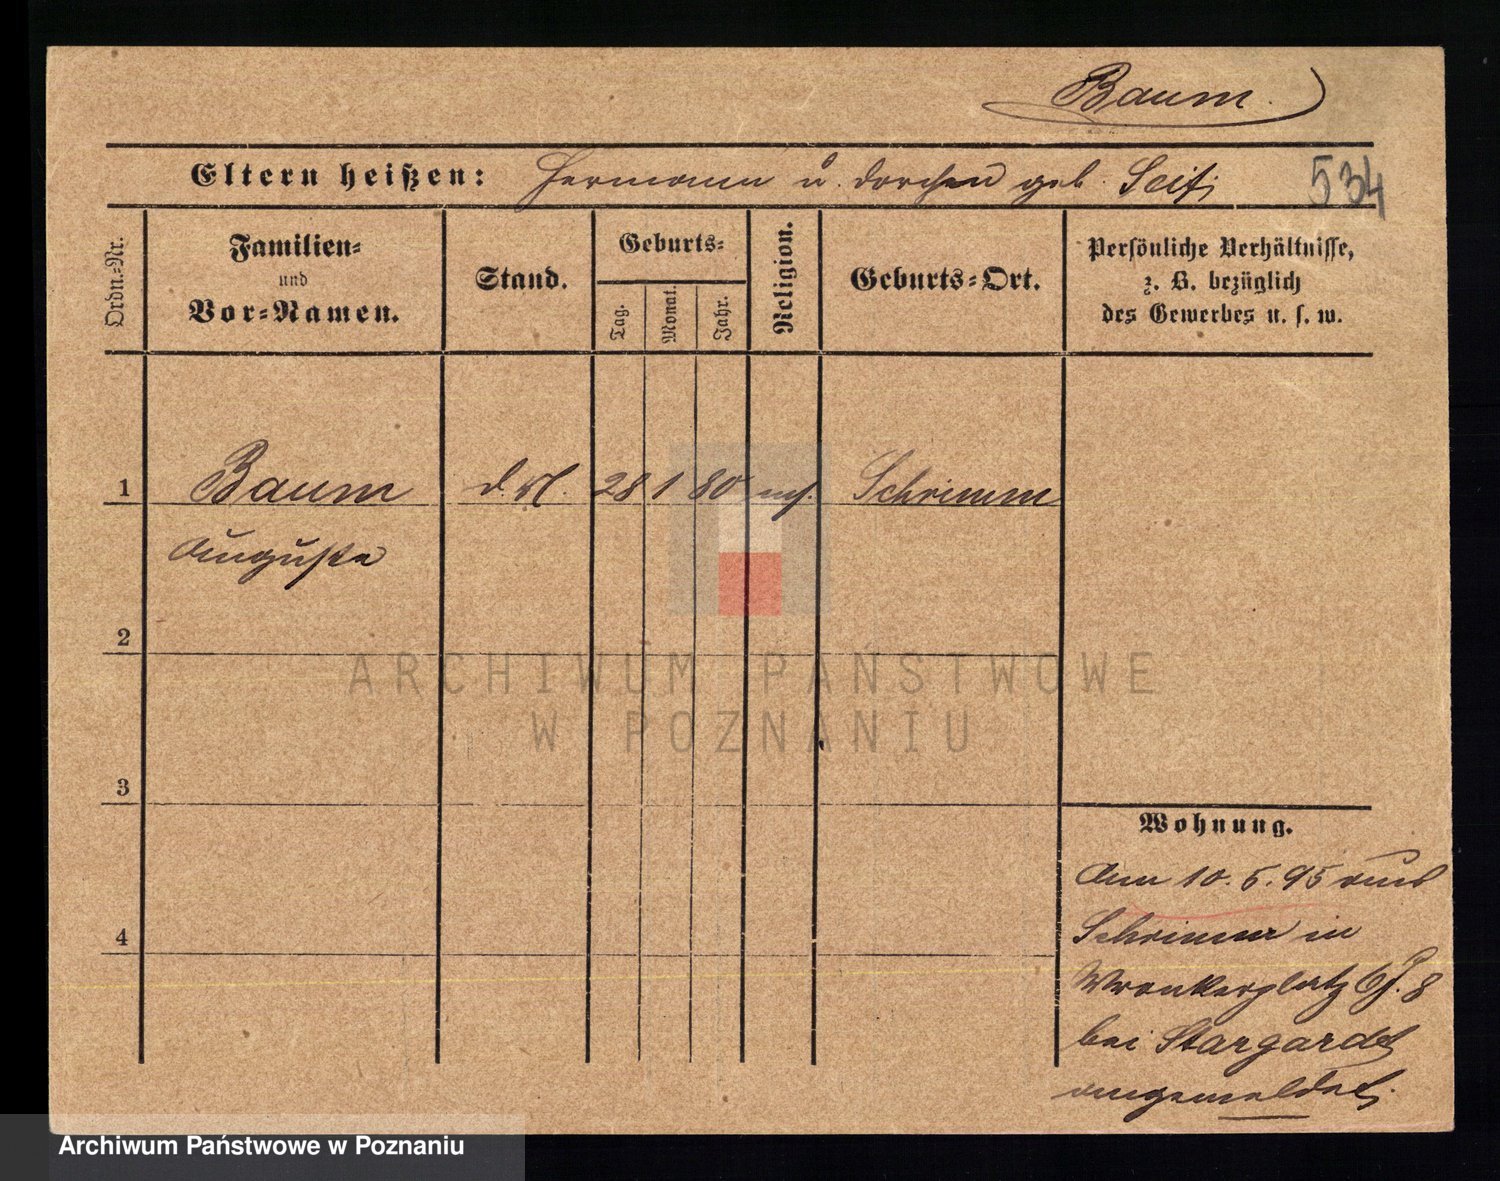 Baum.
Eltern heißen: Hermann u. Dorchen geb. Seif
534
Ordn.-Nr.
Familien-
und
Vor-Namen.
Stand.
Geburts-
Tag.
Monat.
Jahr.
Religion.
Geburts-Ort.
Persönliche Verhältnisse,
z. B. bezüglich
des Gewerbes u. s. w.
1 Baum 28 1 80 Schrimm
Auguste
2
3
4
Wohnung.
Am 10. 5. 95 aus
Schrimm in
Wronkerplatz
bei Stargardt
angemeldet.
ARCHIWUM PAŃSTWOWE
W POZNANIU
Archiwum Państwowe w Poznaniu